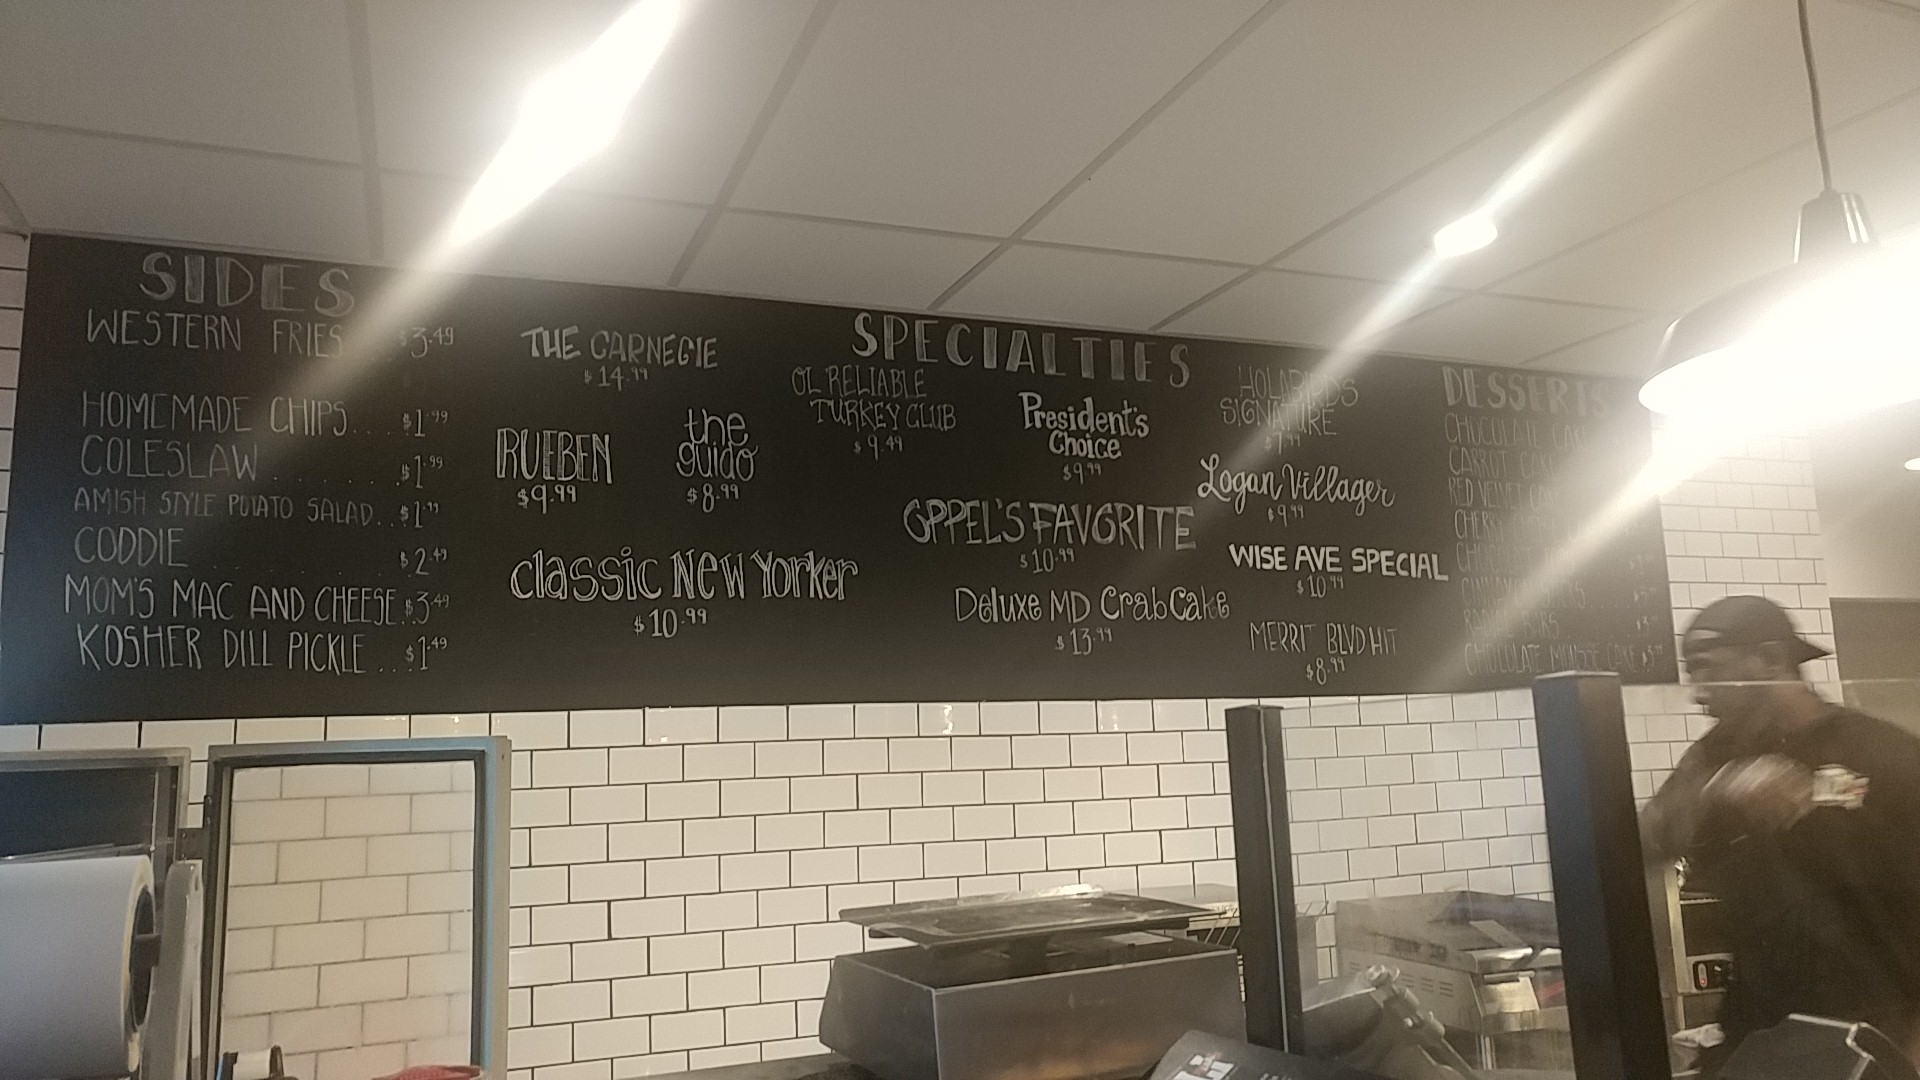 SIDES
WESTERN FRIES $3.49
HOMEMADE CHIPS.... $1.99
COLESLAW........$1.99
AMISH STYLE POTATO SALAD..$1.99
CODDIE $2.49
MOM'S MAC AND CHEESE.$3.49
KOSHER DILL PICKLE...$1.49
SPECIALTIES
THE CARNEGIE
$14.99
RUEBEN
$9.99
the
guido
$8.99
Classic New Yorker
$10.99
OL RELIABLE
TURKEY CLUB
$9.49
President's
Choice
$9.99
OPPEL'S FAVORITE
$10.99
Deluxe MD Crab Cake
$13.99
HOLABIRDS
SIGNATURE
Logan Villager
$9.99
WISE AVE SPECIAL
$10.99
MERRIT BLVD HIT
$8.99
DESSERTS
CHOCOLATE
CARROT
RED VELVET
CHERRY
CHOCOLATE MOUSSE CAKE